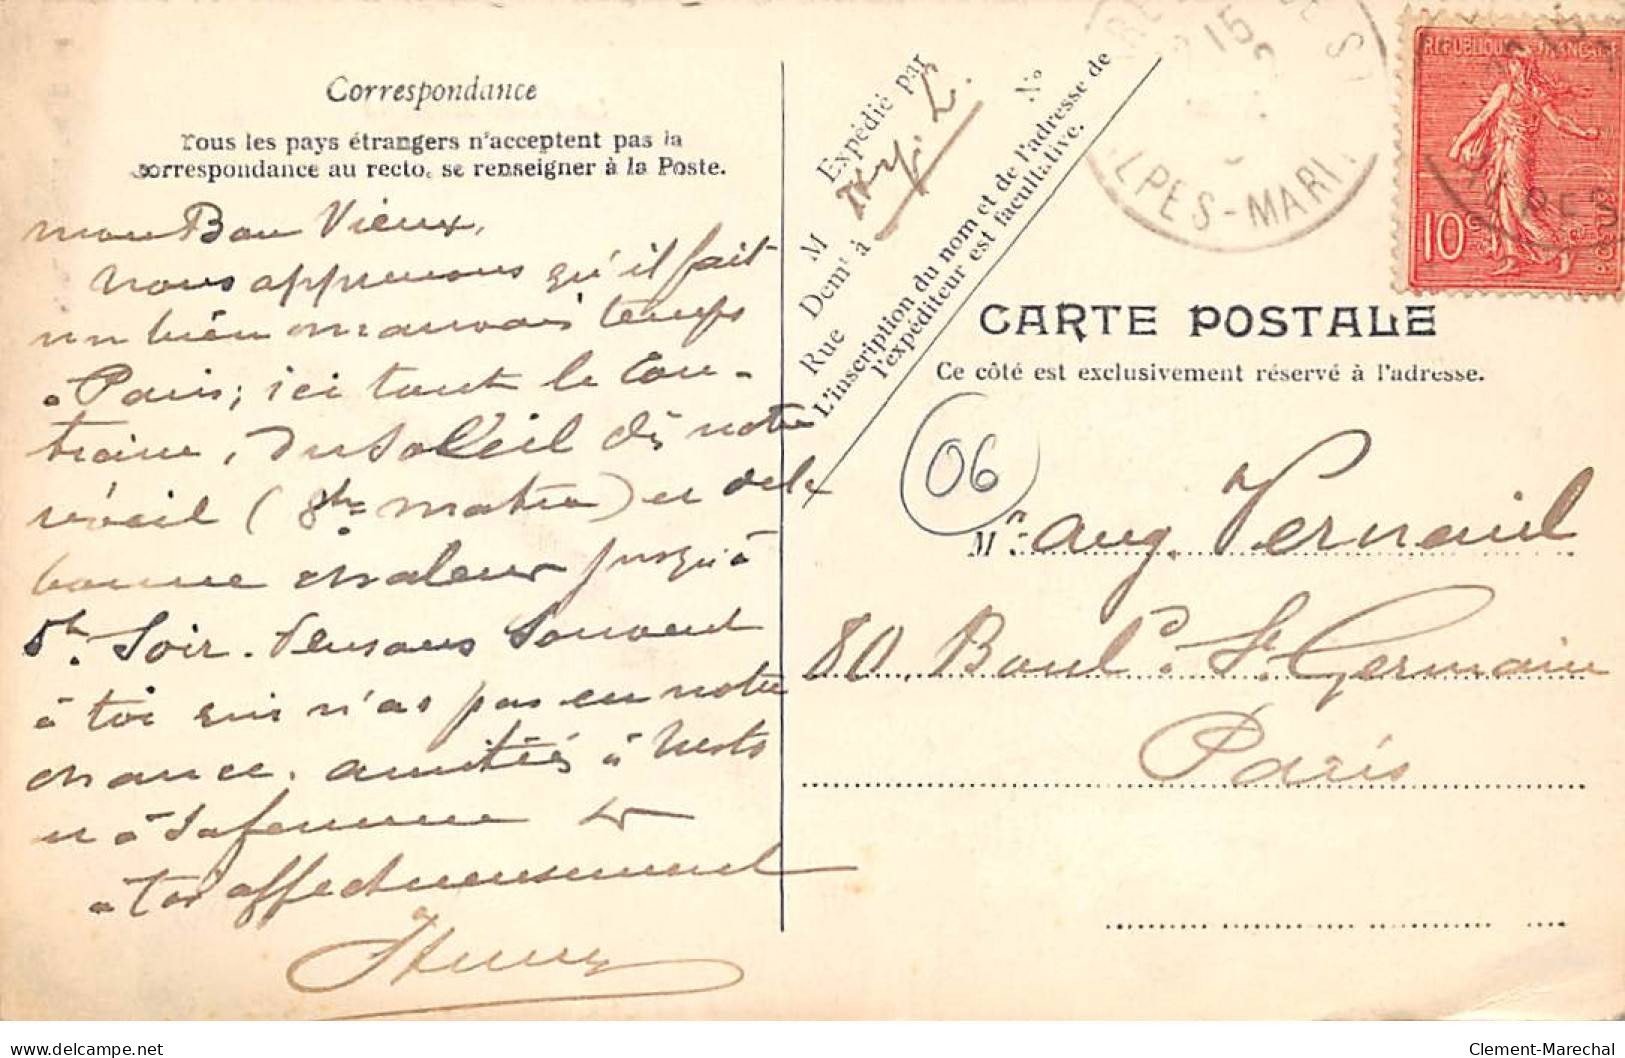 Correspondance
Tous les pays étrangers n'acceptent pas la
correspondance au recto, se renseigner à la Poste.
mon Bon Vieux,
nous apprenons qu'il fait
un bien mauvais temps
à Paris; ici tout le con-
traire, du soleil dès notre
réveil (8h matin) et de la
bonne chaleur jusqu'à
5h. Soir. Pensons souvent
à toi qui n'as pas cu notre
chance. amitiés à
et à ta femme et
à toi affectueusement
Henry
Expédié par
M
Demt à
Rue
No
L'inscription du nom et de l'adresse de
l'expéditeur est facultative.
15
ALPES-MARIT
REPUBLIQUE FRANÇAISE
10c
POSTES
CARTE POSTALE
Ce côté est exclusivement réservé à l'adresse.
06
Mr. Aug. Verneuil
80, Boul.d St. Germain
Paris
Clement-Marechal